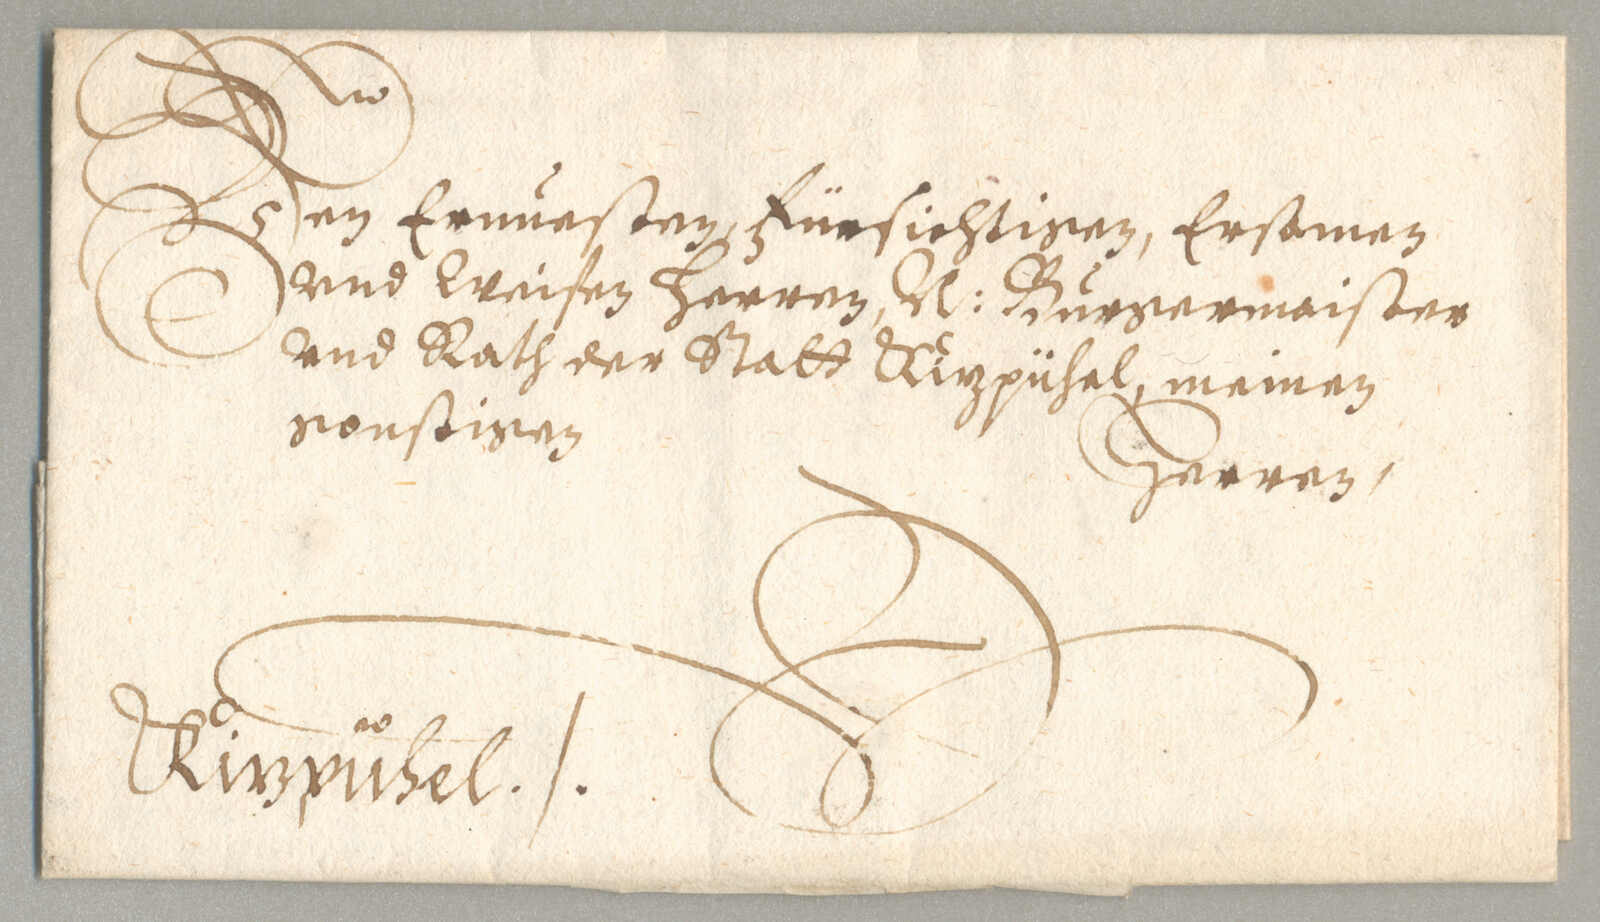 Den Ernuesten, Fürsichtigen, Ersamen
vnd Weisen Herren, N: Burgermaister
vnd Rath der Statt Kizpühel, meinen
gonstigen
Herren,
Kizpühel ./.